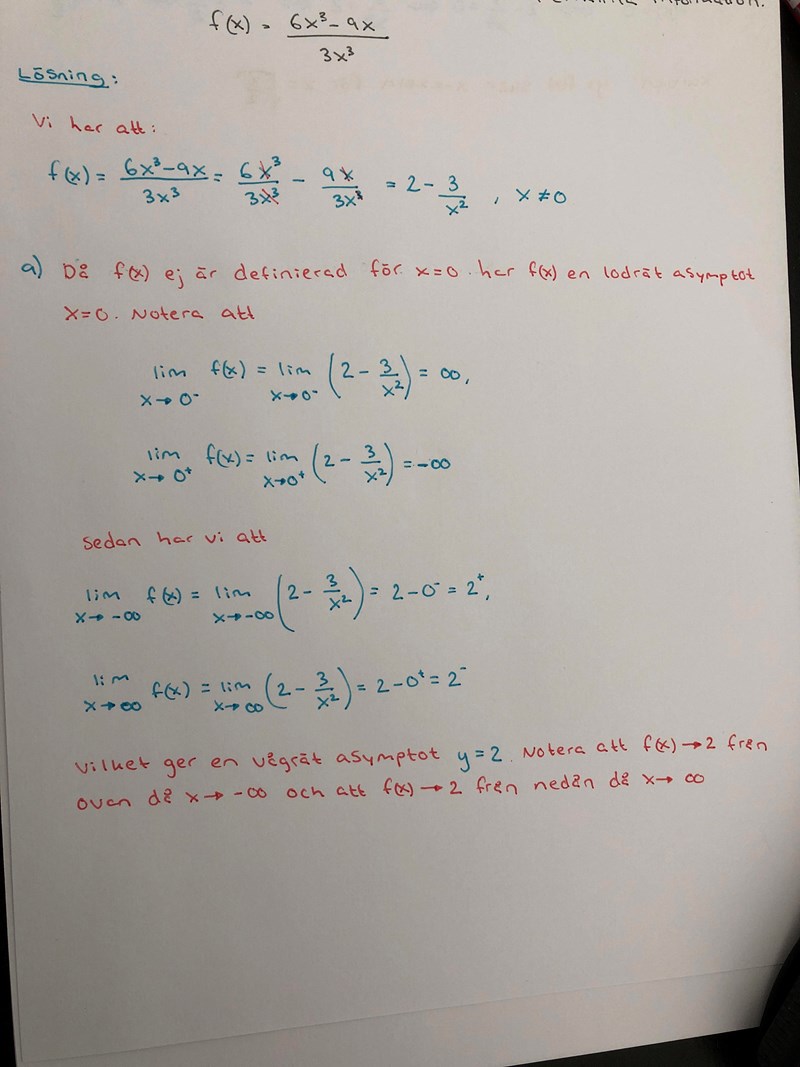 f(x) = 6x³-9x / 3x³
Lösning:
Vi har att:
f(x) = 6x³-9x / 3x³ = 6x³ / 3x³ - 9x / 3x³ = 2 - 3 / x² , x ≠ 0
a) Då f(x) ej är definierad för x=0 har f(x) en lodrät asymptot
x=0. Notera att
lim x→0⁻ f(x) = lim x→0⁻ (2 - 3/x²) = ∞,
lim x→0⁺ f(x) = lim x→0⁺ (2 - 3/x²) = -∞
Sedan har vi att
lim x→-∞ f(x) = lim x→-∞ (2 - 3/x²) = 2-0⁻ = 2⁺,
lim x→∞ f(x) = lim x→∞ (2 - 3/x²) = 2-0⁺ = 2⁻
Vilket ger en vågrät asymptot y=2. Notera att f(x)→2 från
ovan då x→-∞ och att f(x)→2 från nedån då x→∞